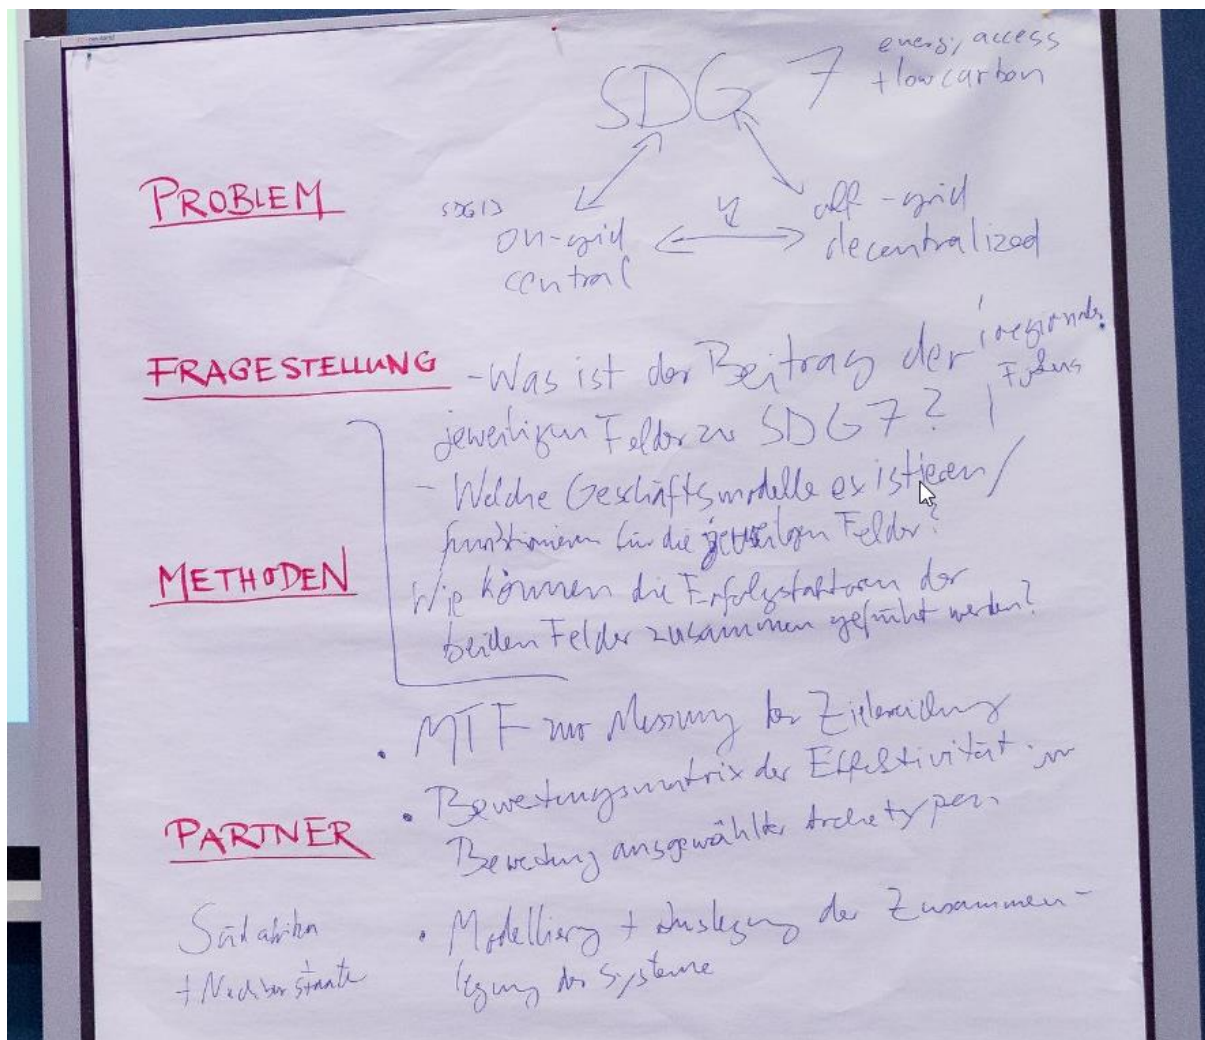 energy access
SDG 7 + low carbon
PROBLEM
off-grid
on-grid decentralized
central
FRAGESTELLUNG - Was ist der Beitrag der
regionaler
Fokus
jeweiligen Felder zu SDG7?
- Welche Geschäftsmodelle existieren/
funktionieren für die jeweiligen Felder?
METHODEN
Wie können die Erfolgsfaktoren der
beiden Felder zusammen geführt werden?
• MTF zur Messung der Zielerreichung
• Bewertungsmatrix der Effektivität zur
Bewertung ausgewählter Archetypen
PARTNER
Südafrika
+ Nachbarstaaten
• Modellierung + Auslegung der Zusammen-
legung der Systeme